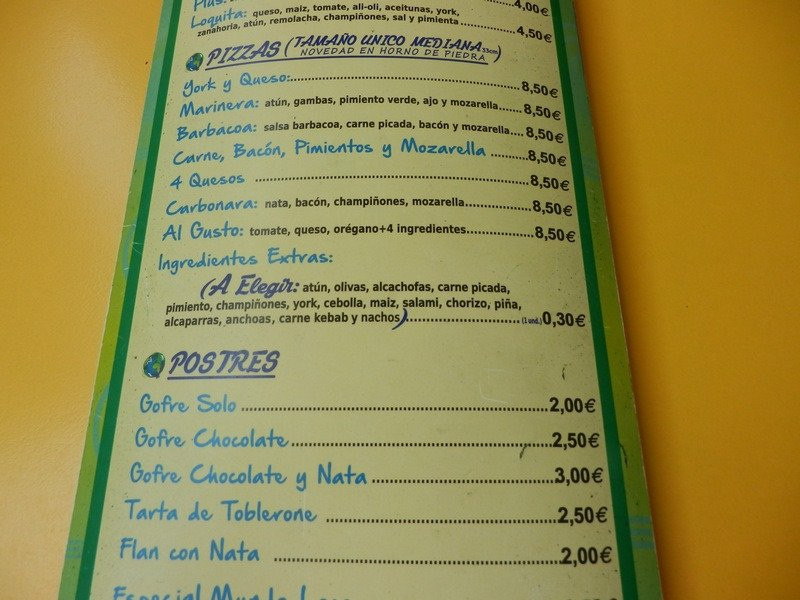 Plus: 4,00€
Loquita: queso, maiz, tomate, all-oli, aceitunas, york,
zanahoria, atún, remolacha, champiñones, sal y pimienta 4,50€
PIZZAS (TAMAÑO UNICO MEDIANA 33cm)
NOVEDAD EN HORNO DE PIEDRA
York y Queso: 8,50€
Marinera: atún, gambas, pimiento verde, ajo y mozarella 8,50€
Barbacoa: salsa barbacoa, carne picada, bacón y mozarella 8,50€
Carne, Bacón, Pimientos y Mozarella 8,50€
4 Quesos 8,50€
Carbonara: nata, bacón, champiñones, mozarella 8,50€
Al Gusto: tomate, queso, orégano+4 ingredientes 8,50€
Ingredientes Extras:
(A Elegir: atún, olivas, alcachofas, carne picada,
pimiento, champiñones, york, cebolla, maiz, salami, chorizo, piña,
alcaparras, anchoas, carne kebab y nachos) (1 und.) 0,30€
POSTRES
Gofre Solo 2,00€
Gofre Chocolate 2,50€
Gofre Chocolate y Nata 3,00€
Tarta de Toblerone 2,50€
Flan con Nata 2,00€
Especial